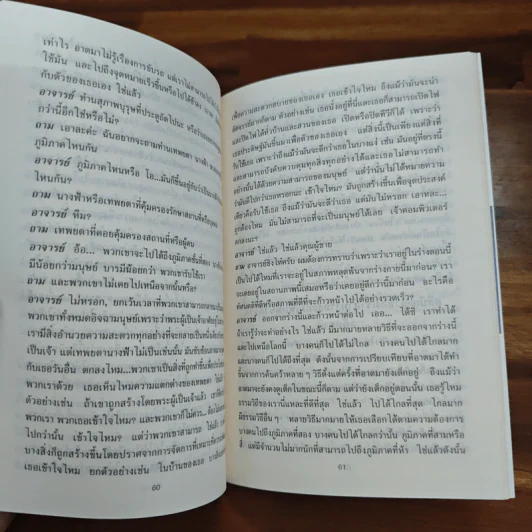 เท่าไร อาตมาไม่รู้เรื่องการขับรถ แต่เราไม่สามารถ
ใช้มัน และไปถึงจุดหมายเร็วขึ้นหรือไปได้ช้าลง
กับตัวของเธอเอง ใช่แล้ว
อาจารย์ ท่านสุภาพบุรุษที่ประตูถัดไปนะ
กว่านี้อีกใช่หรือไม่?
ถาม เอาละค่ะ ฉันอยากจะถามท่านเทพยดา นางฟ้า
ภูมิภาคไหนกัน
อาจารย์ ภูมิภาคไหนหรือ โอ...มันก็ขึ้นอยู่กับว่า
ไหนกัน?
ถาม นางฟ้าหรือเทพยดาที่คุ้มครองรักษาสถานที่หรือบุคคล
อาจารย์ หืม?
ถาม เทพยดาที่คอยคุ้มครองสถานที่หรือผู้คน
อาจารย์ อ๋อ... พวกเขาจะไปได้ถึงภูมิภาคชั้นที่สอง
มีน้อยกว่ามนุษย์ บารมีน้อยกว่า พวกเขารับใช้เรา
ถาม และพวกเขาไม่เคยไปเหนือจากนั้นหรือ?
อาจารย์ ไม่หรอก, ยกเว้นเวลาที่พวกเขาสามารถ
พวกเขาทั้งหมดอิจฉามนุษย์เพราะว่าพระผู้เป็นเจ้า
เรามีสิ่งอำนวยความสะดวกทุกอย่างที่จะกลายเป็นหนึ่งเดียว
เป็นเจ้า แต่เทพยดานางฟ้าไม่เป็นเช่นนั้น มันซับซ้อน
กับเธอวันอื่น ตกลงไหม... พวกเขาเป็นสิ่งที่ถูกทำขึ้น
พวกเราด้วย เธอเห็นไหมความแตกต่างของเทพยดา
ด้วย ตัวอย่างเช่น ถ้าเขาถูกสร้างโดยพระผู้เป็นเจ้าแล้ว
พวกเรา พวกเธอเข้าใจไหม? และพวกเขาก็ไม่ควร... ดังนั้น
ไปกว่านั้น เข้าใจไหม? แต่ว่าพวกเขาสามารถ
บางสิ่งก็ถูกสร้างขึ้นโดยปราศจากการจัดการที่เหมาะ
เธอเข้าใจไหม ยกตัวอย่างเช่น ในบ้านของเธอ
60
เพื่อความสะดวกสบายของเธอเอง เธอเข้าใจไหม ถึงแม้ว่ามันจะน่า
อัศจรรย์ก็ตาม ตัวอย่างเช่น เธอนั่งอยู่ที่นี่และเธอก็สามารถเปิดไฟ
และปิดไฟได้ทั่วบ้านและสวนของเธอ เปิดหรือปิดทีวีก็ได้ เพราะว่า
เธอประดิษฐ์มันขึ้นมาเพื่อตัวของเธอเอง แต่สิ่งนี้เป็นเพียงแค่สิ่งที่
รับใช้เธอ เพราะว่าถึงแม้ว่ามันจะดีกว่าเธอในบางแง่ เช่น มันอยู่ที่ตรงนี้
และบังคับควบคุมทุกสิ่งทุกอย่างได้และเธอไม่สามารถทำ
อย่างนั้นได้ด้วยความสามารถของมนุษย์ แต่ว่านั่นไม่ได้หมายความ
ว่ามันดีไปกว่าเธอหรอกนะ เข้าใจไหม? มันถูกสร้างขึ้นเพื่อจุดประสงค์
เดียวคือรับใช้เธอ ถึงแม้ว่ามันจะดีกว่าเธอ แต่มันไม่หรอก เอาหละ...
ถูกต้องไหม มันไม่สามารถที่จะเป็นมนุษย์ได้เลย เจ้าคอมพิวเตอร์
ตกลงนะ?
อาจารย์ ใช่แล้ว ใช่แล้วคุณผู้ชาย
ถาม อาจารย์ชิงไห่ครับ ผมต้องการทราบว่าเพราะว่าเราอยู่ในร่างตอนนี้
เป็นไปได้ไหมที่เราจะอยู่ในสภาพที่หลุดพ้นจากร่างกายนี้มาก่อน? เรา
จะเคยอยู่ในสถานภาพนี้เสมอหรือว่าเคยอยู่ดีกว่านี้มาก่อน อะไรคือ
ทัศนคติที่ดีที่สุดหรือสภาพที่ดีที่ที่จะก้าวหน้าไปได้อย่างรวดเร็ว?
อาจารย์ ออกจากร่างนี้แล้วก้าวหน้าต่อไป เออ... ได้ซิ เราทำได้
ถ้าเรารู้ว่าจะทำอย่างไร ใช่แล้ว มีมากมายหลายวิธีที่จะออกจากร่างนี้
และไปเหนือโลกนี้ บางคนก็ไปได้ไม่ไกล บางคนไปได้ไกลมาก
และบางคนก็ไปได้ถึงที่สุด ดังนั้นจากการเปรียบเทียบที่อาตมาได้ทำ
จากการค้นคว้าหลาย ๆ วิธี ตั้งแต่ครั้งที่อาตมายังเด็กอยู่ ถึงแม้
อาตมาจะยังคงดูเด็กในขณะนี้ก็ตาม แต่ว่ายังเด็กอยู่ตอนนั้น เธอรู้ไหม
ธรรมวิธีของเรานี่แหละที่ดีที่สุด ไปได้ไกลที่สุด ไกลมาก
มีธรรมวิธีอื่นๆ หลายวิธีมากมายให้เธอเลือกได้ตามความต้องการ
บางคนไปถึงภูมิภาคที่สอง บางคนไปได้ไกลกว่านั้น ภูมิภาคที่สามหรือ
สี่ แต่มีจำนวนไม่มากนักที่สามารถไปถึงภูมิภาคที่ห้า ใช่แล้วดังนั้น
61